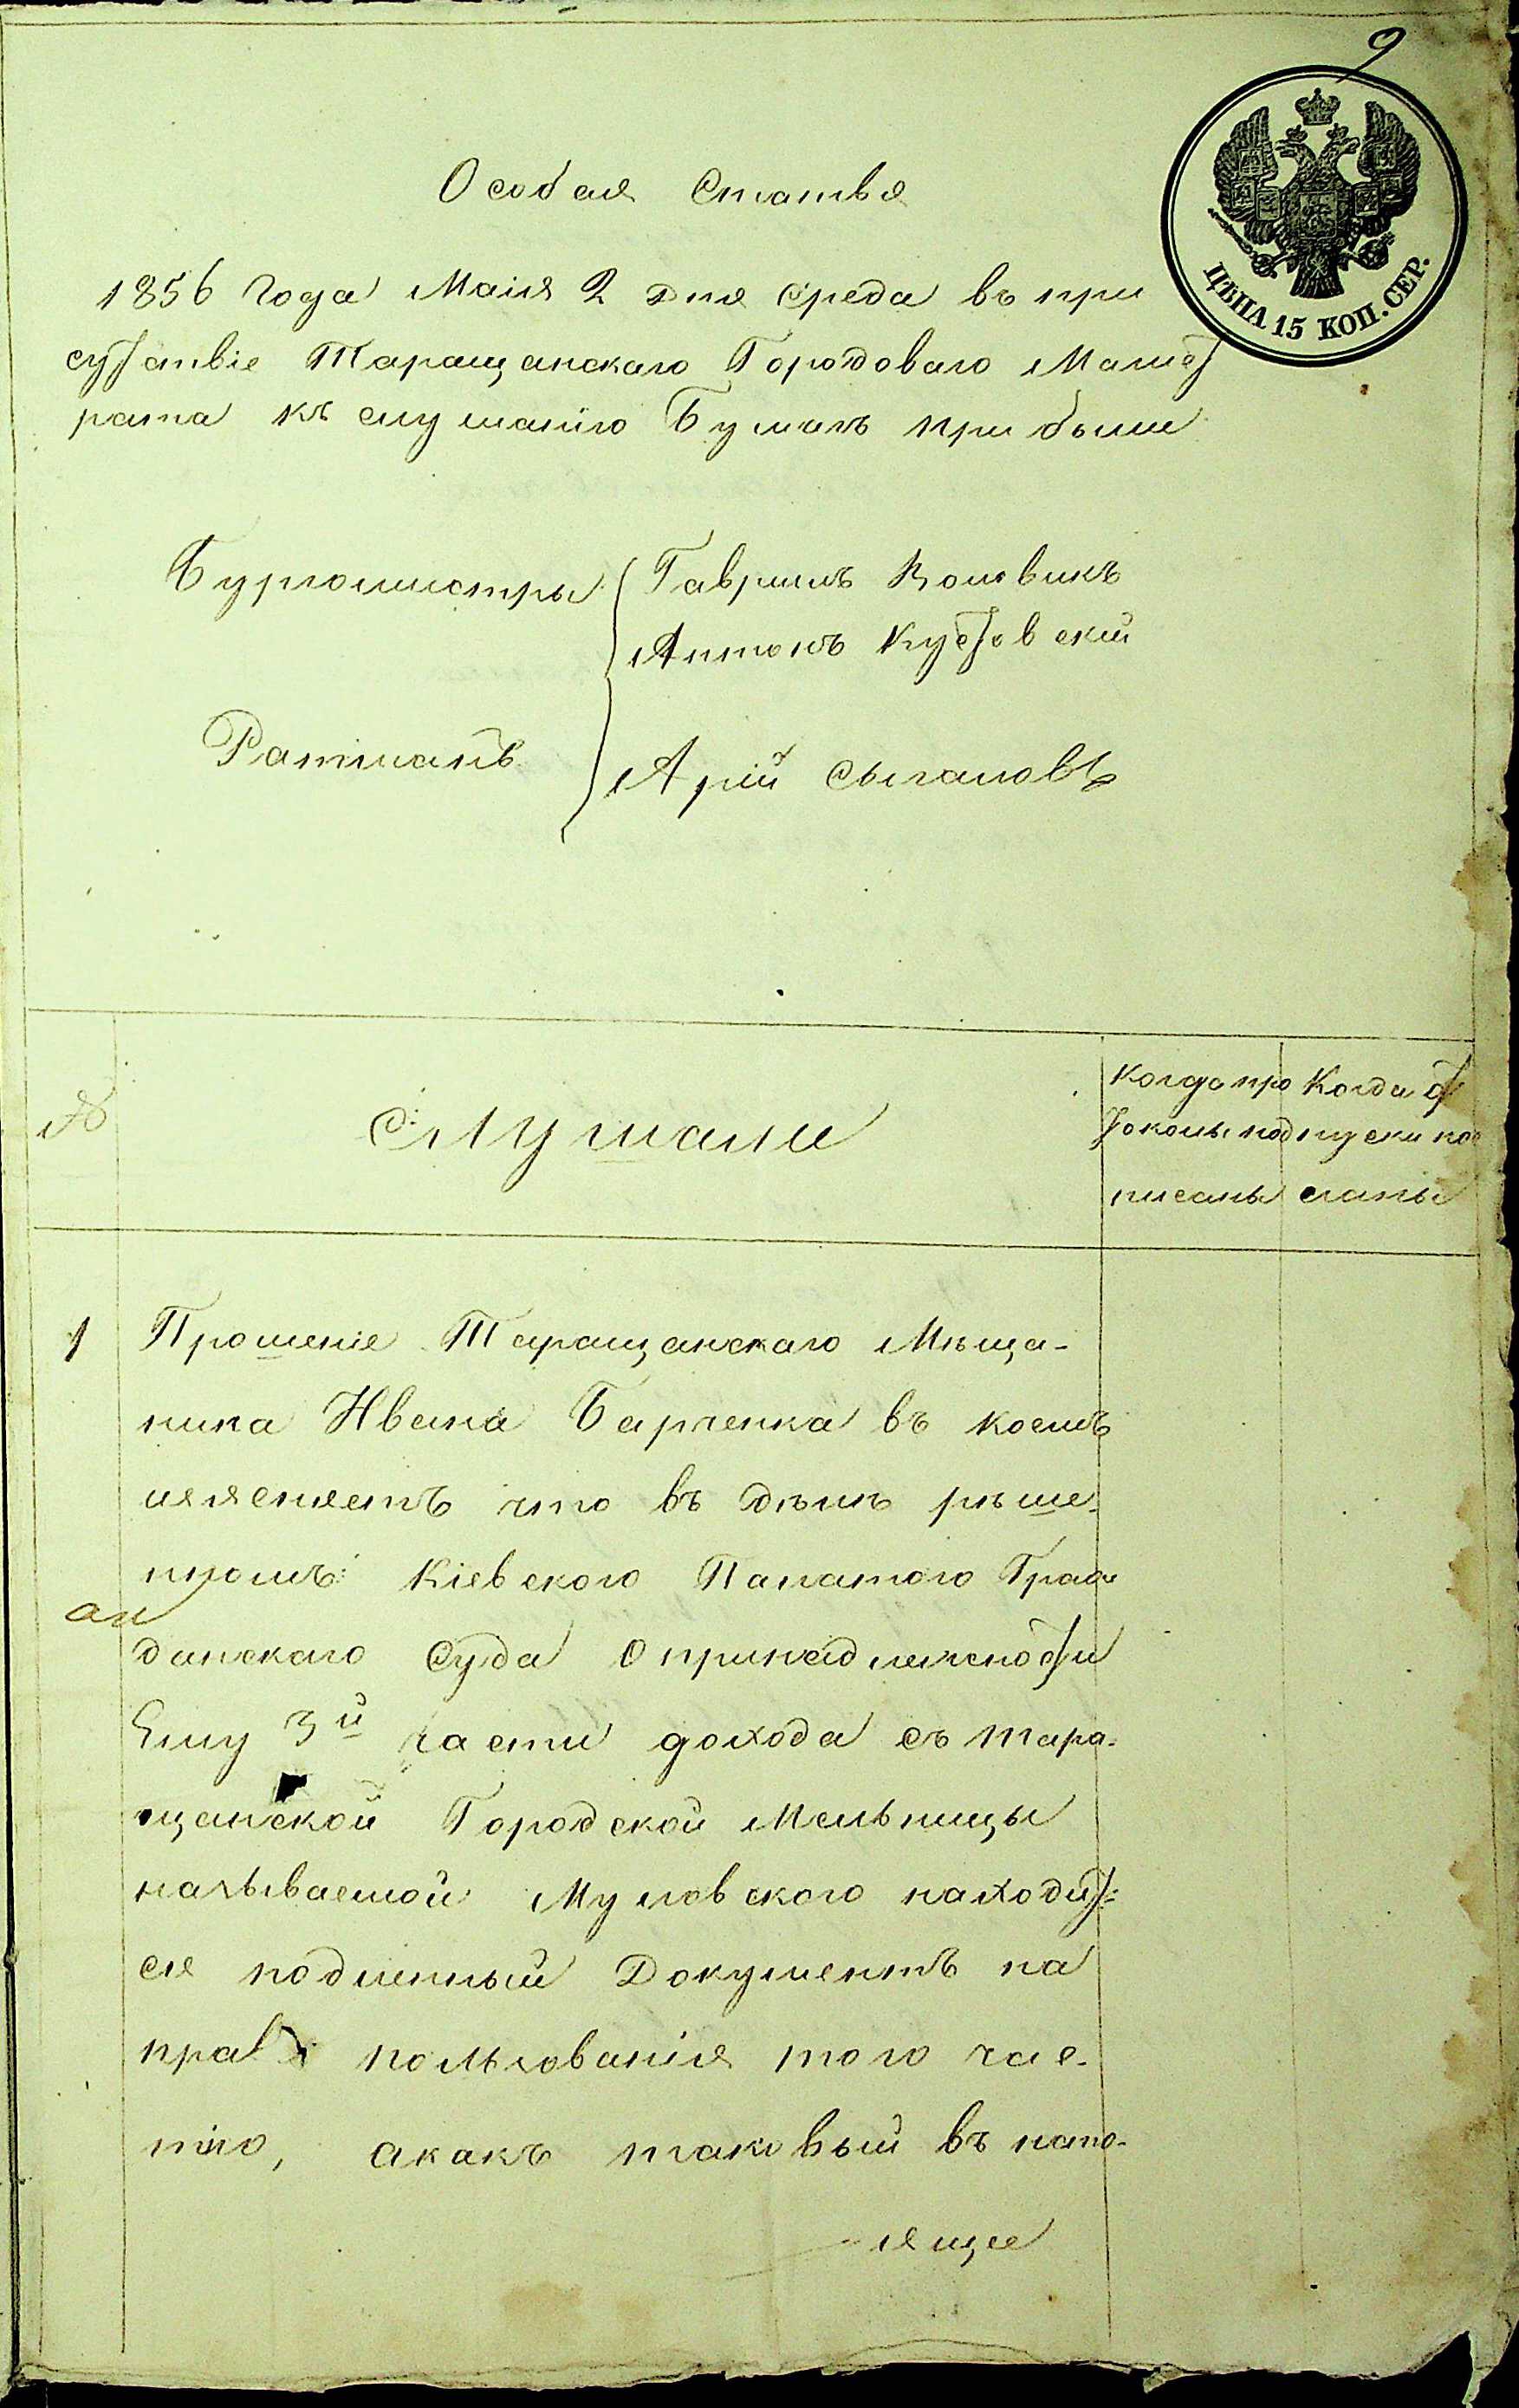 9
ЦѢНА 15 КОП. СЕР.
Особая Статья
1856 Года Маія 2 дня Среда въ при
сутствіе Таращанскаго Городоваго Магист
рата къ слушанію Бумагъ прибыли
Бургомистры Гавриилъ
Антонъ Кустовскій
Ратманъ Арій Сыгаловъ
№ Слушали
Когда про
токолы под
писаны
Когда от
пуски пос
ланы
1 Прошеніе Таращанскаго Мѣща-
нина Ивана Барченка въ коемъ
изясняетъ что въ дѣлѣ рѣше-
нномъ Кіевского Палатого Граж
данскаго Суда О принадлежности
Ему 3й части дохода съ тара-
щанской Городской Мельницы
называемой Муловского находит-
ся подленный Документъ на
право ползованія того час-
тію, а какъ таковый въ насто-
ящее